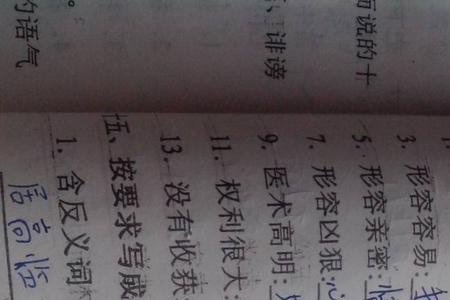 而说的
、诽谤
。
的语气
3. 形容容易:
5. 形容亲密:
7. 形容凶狠:
9. 医术高明:
11. 权利很大:
13. 没有收获
伍、按要求写成
1. 含反义词
居高临